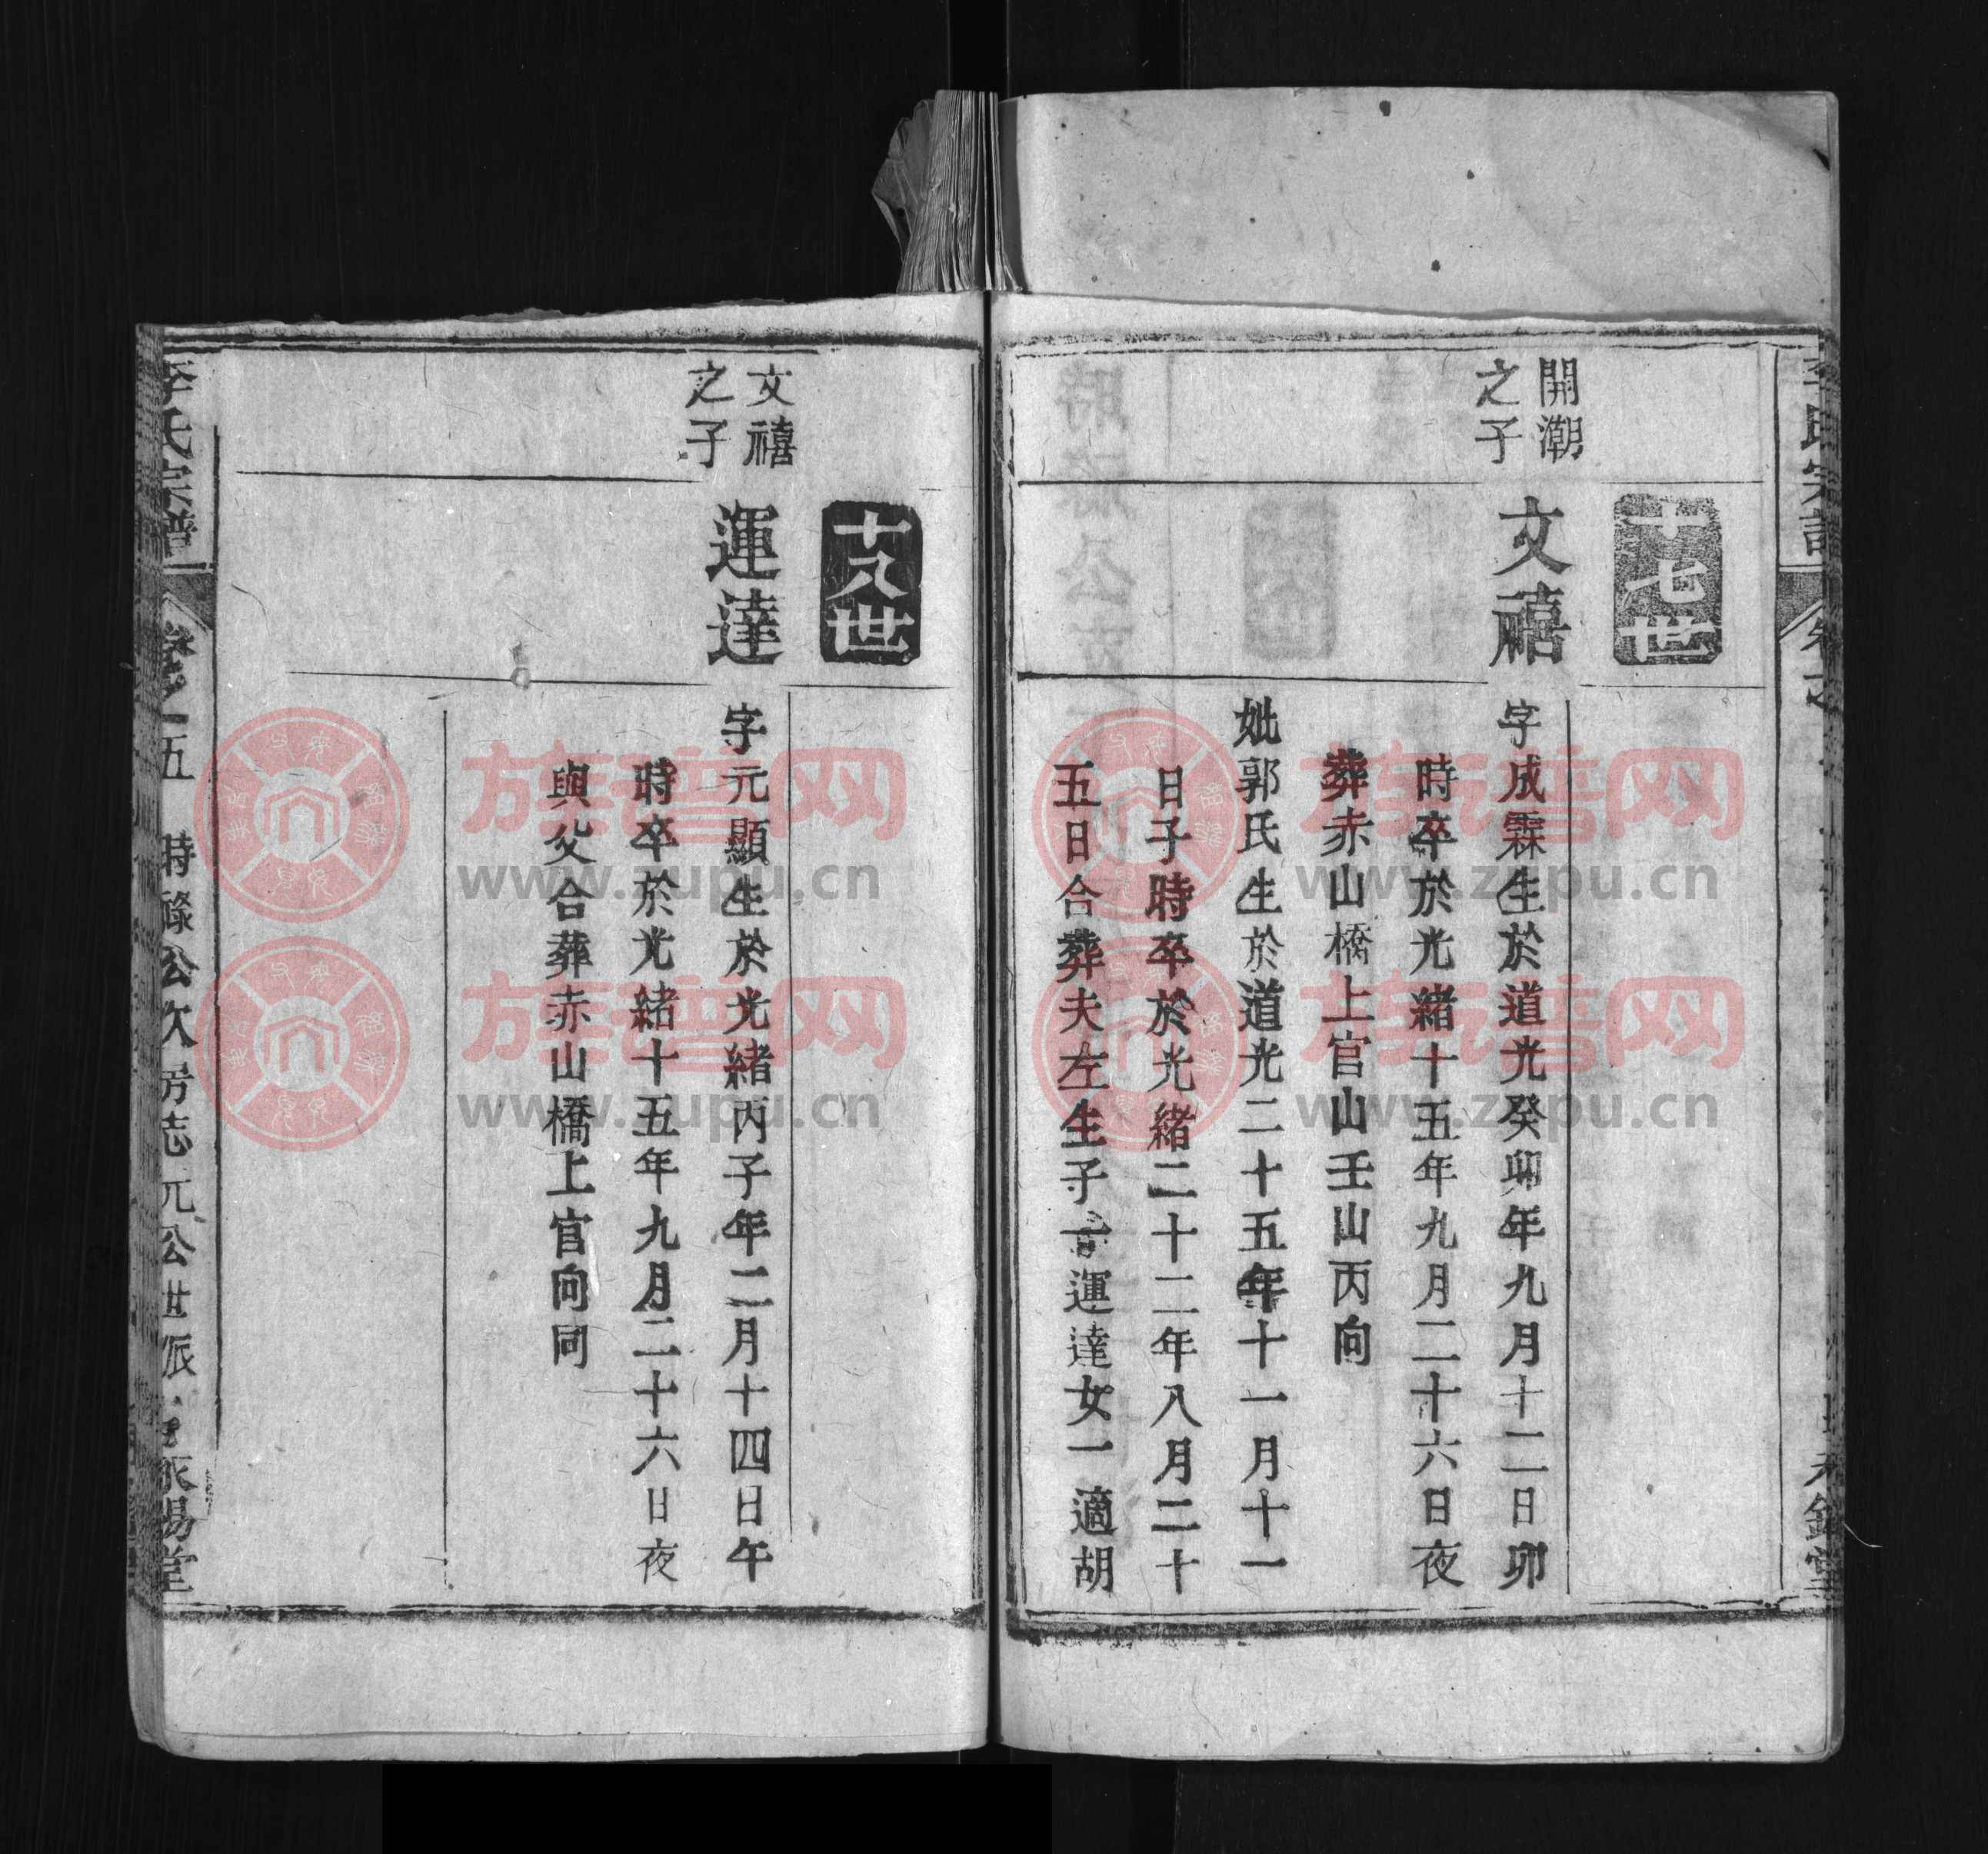 十七世
開潮
之子
文禧
字成霖生於道光癸卯年九月十二日卯
時卒於光緒十五年九月二十六日夜
葬赤山橋上官山壬山丙向
妣郭氏生於道光二十五年十一月十一
日子時卒於光緒二十二年八月二十
五日合葬夫左生子一運達女一適胡
十八世
文禧
之子
運達
字元顯生於光緒丙子年二月十四日午
時卒於光緒十五年九月二十六日夜
與父合葬赤山橋上官向同
李氏宗譜
卷之五
時祿公次房志元公世派
族谱网
www.zupu.cn
族谱网
www.zupu.cn
族谱网
www.zupu.cn
族谱网
www.zupu.cn